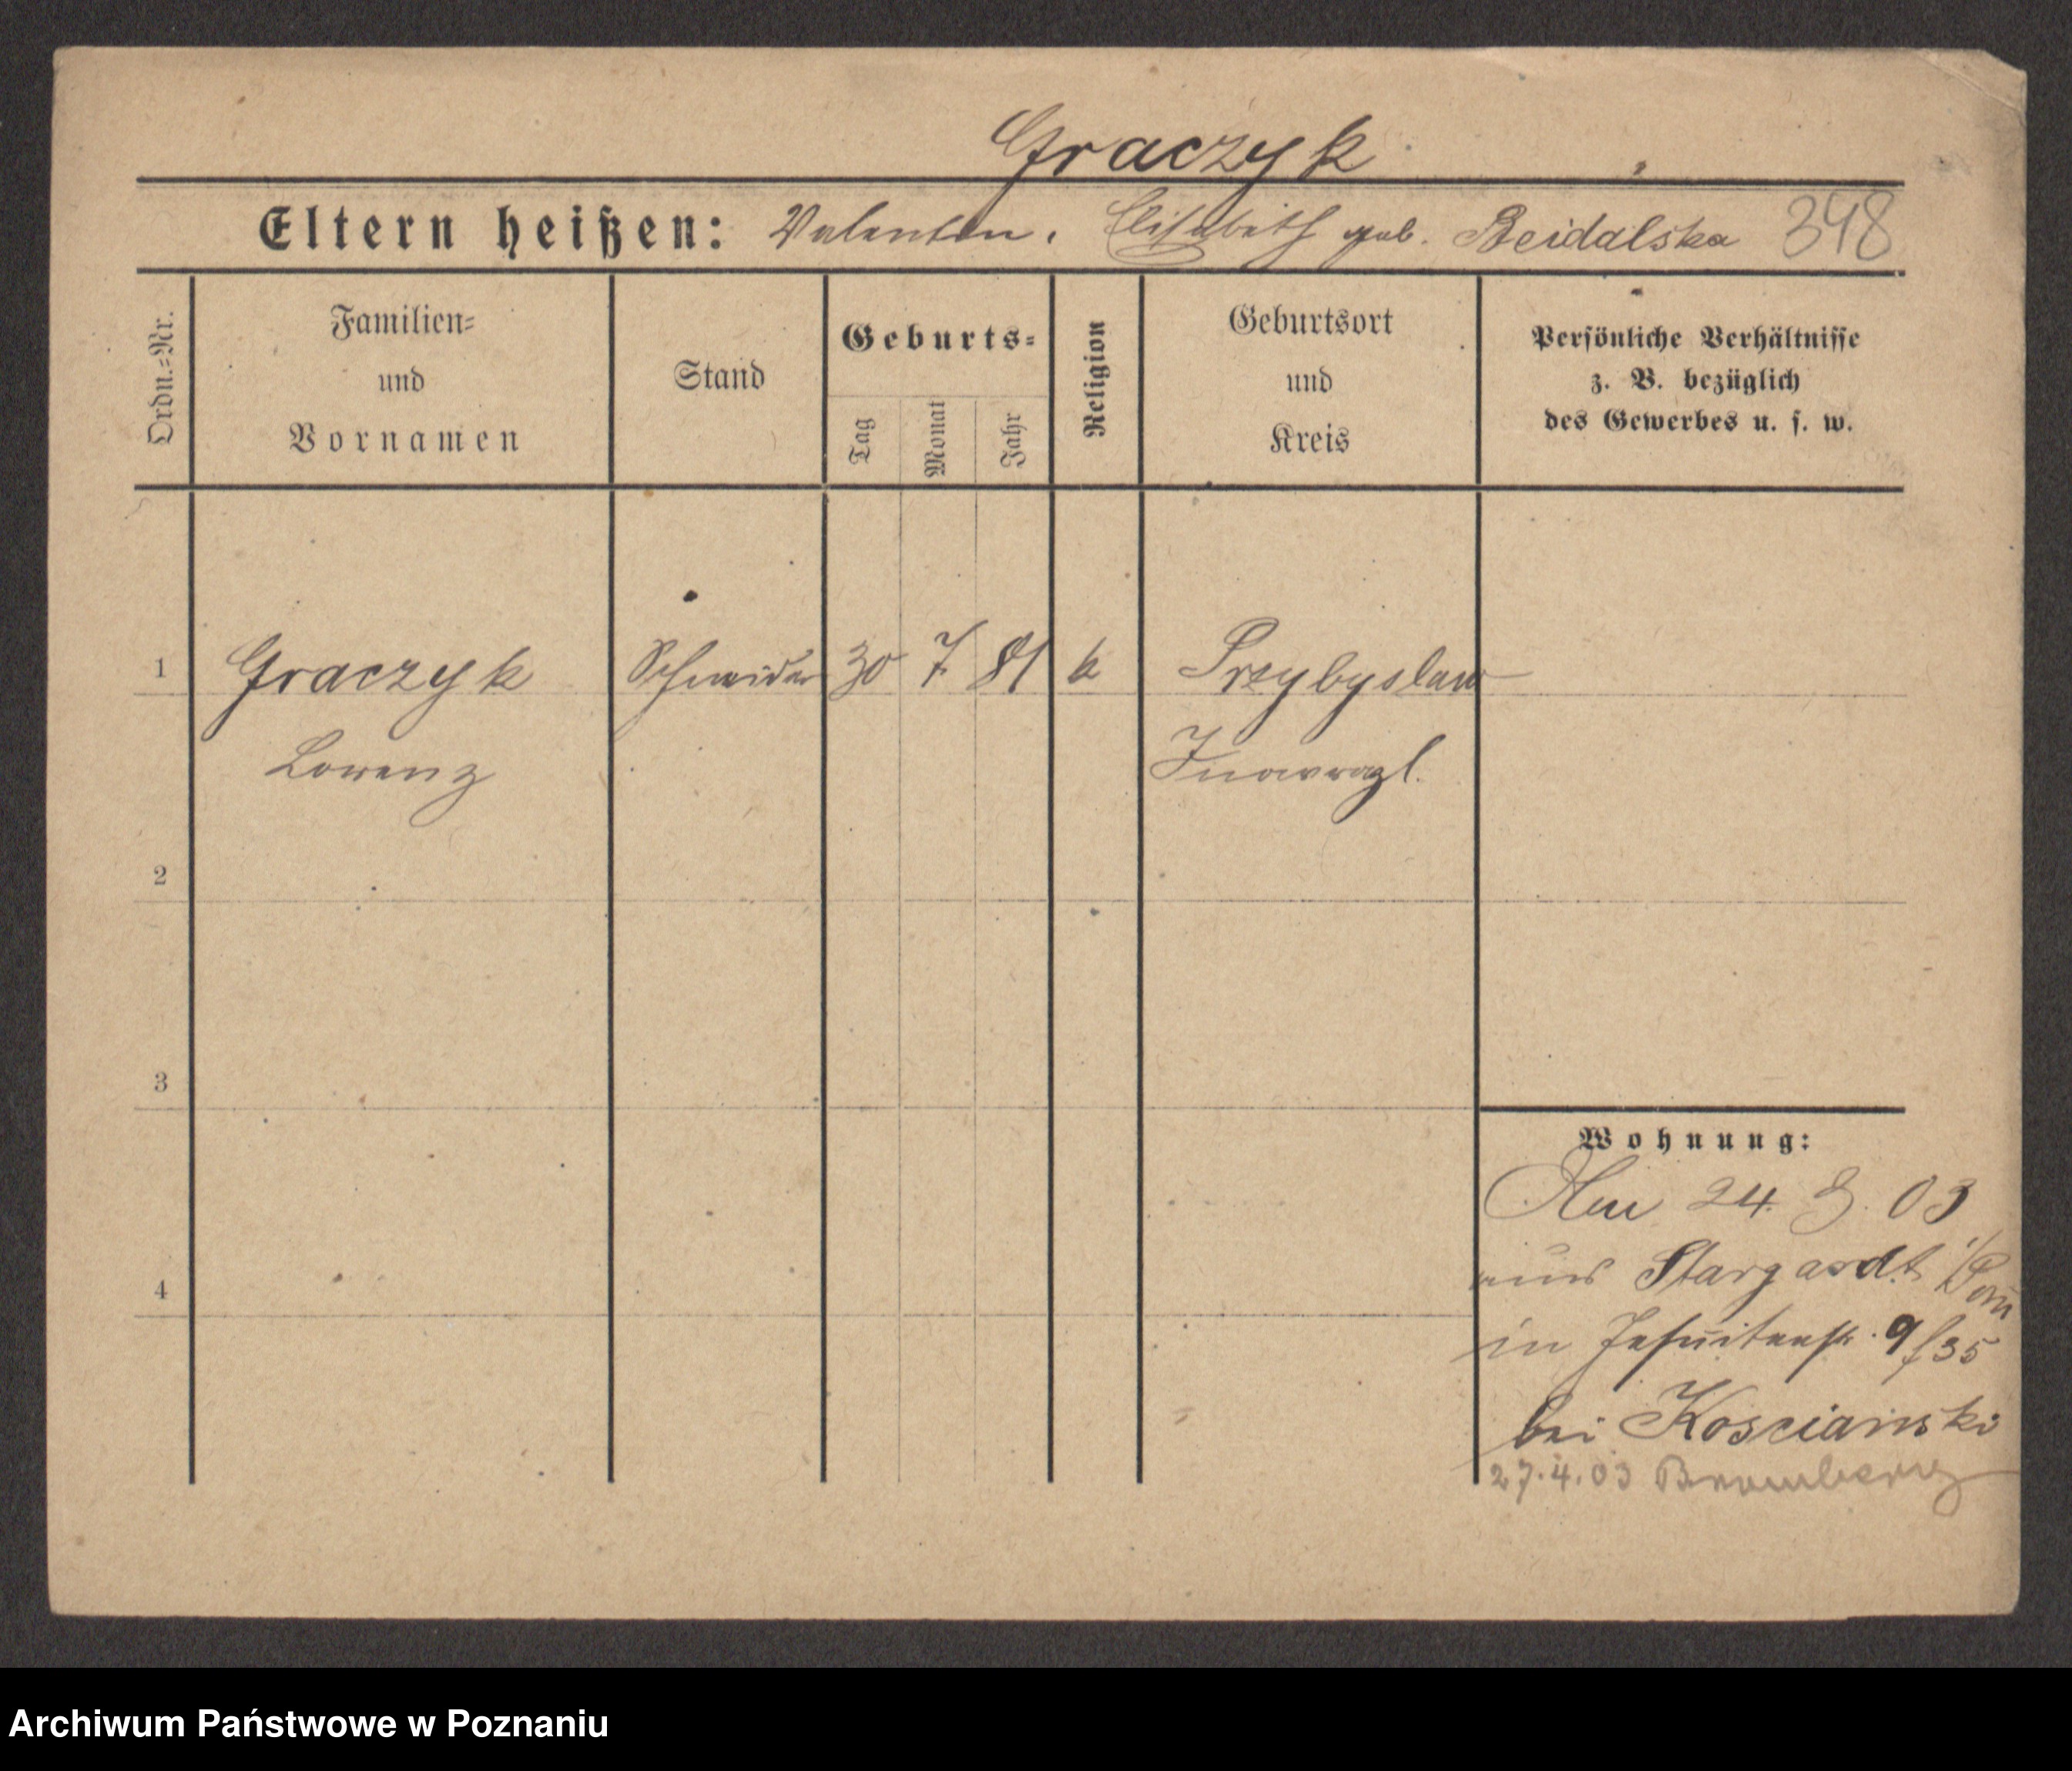 Graczyk
Eltern heißen: Valentin. Elisabeth geb. Beidalska 348
Ordn.=Nr.
Familien=
und
Vornamen
Stand
Geburts=
Tag
Monat
Jahr
Religion
Geburtsort
und
Kreis
Persönliche Verhältnisse
z. B. bezüglich
des Gewerbes u. s. w.
1 Graczyk Schneider 30 7 81 k Przybyslaw
Lorenz Inowrazl.
2
3
4
Wohnung:
24. 3. 03
aus Stargardt i/Pom
in Jesuitenstr. 9/35
bei Koscianski
27.4.03 Bromberg
Archiwum Państwowe w Poznaniu